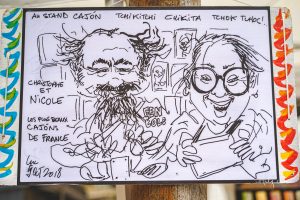 AU STAND CAJÓN TCHIKITCHI CHIKITA TCHOK TCHOC!
CHRISTOPHE
ET
NICOLE
LES PLUS BEAUX
CAJÓNS
DE FRANCE
2018